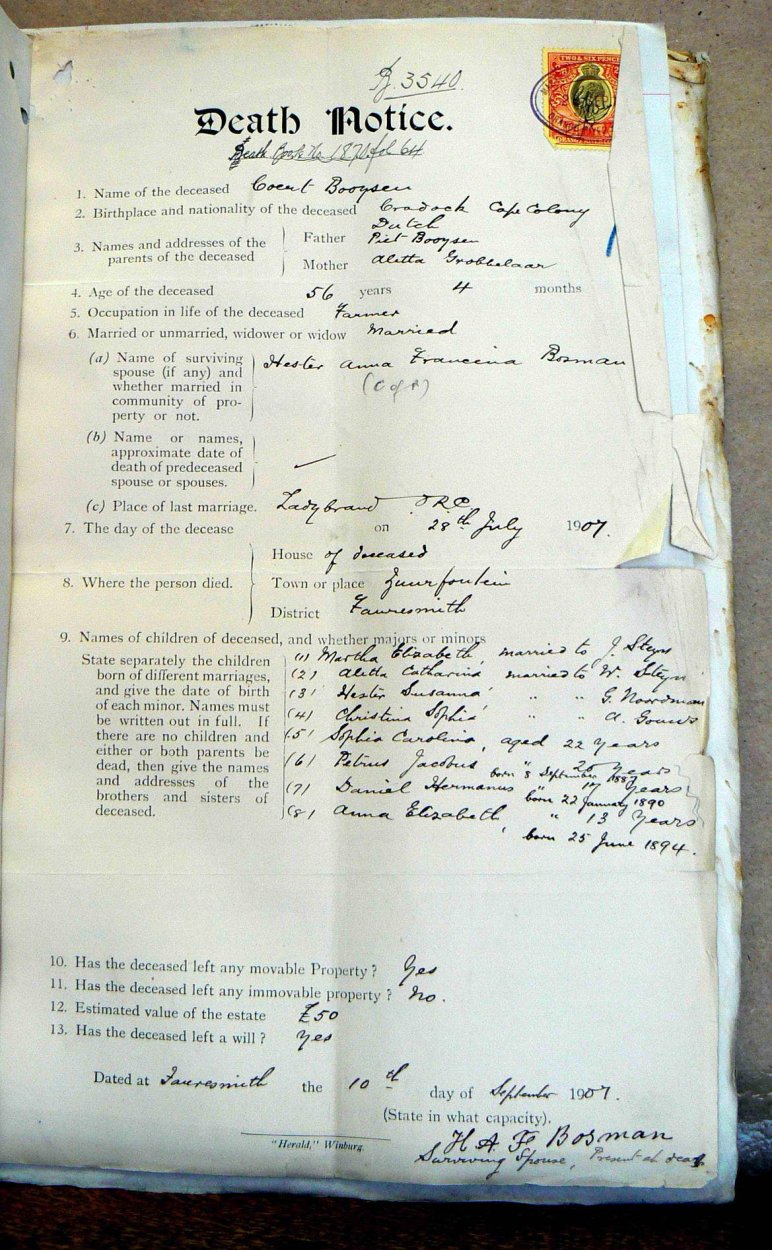 B. 3540.
TWO & SIX PENCE
Death Notice.
Death Book No 1870 fol 64
1. Name of the deceased Coert Booysen
2. Birthplace and nationality of the deceased Cradock Cape Colony
Dutch
3. Names and addresses of the parents of the deceased Father Piet Booysen
Mother Aletta Grobbelaar
4. Age of the deceased 56 years 4 months
5. Occupation in life of the deceased Farmer
6. Married or unmarried, widower or widow Married
(a) Name of surviving Hester Anna Francina Bosman
spouse (if any) and
whether married in (C of P)
community of pro-
perty or not.
(b) Name or names,
approximate date of
death of predeceased
spouse or spouses.
(c) Place of last marriage. Ladybrand ORC
7. The day of the decease on 28th July 1907.
8. Where the person died. House of deceased
Town or place Zuurfontein
District Fauresmith
9. Names of children of deceased, and whether majors or minors
State separately the children (1) Martha Elizabeth, married to J. Steyn
born of different marriages, (2) Aletta Catharina married to W. Steyn
and give the date of birth (3) Hester Susanna " " G. Noordman
of each minor. Names must (4) Christina Sophia " " A. Gouws
be written out in full. If (5) Sophia Carolina, aged 22 years
there are no children and (6) Petrus Jacobus " 20 years
either or both parents be born 8 September 1887
dead, then give the names (7) Daniel Hermanus " 17 years
and addresses of the born 22 January 1890
brothers and sisters of (8) Anna Elizabeth " 13 years
deceased. born 25 June 1894.
10. Has the deceased left any movable Property? Yes
11. Has the deceased left any immovable property? No.
12. Estimated value of the estate £50
13. Has the deceased left a will? Yes
Dated at Fauresmith the 10th day of September 1907.
(State in what capacity).
H A F Bosman
"Herald," Winburg.
Surviving Spouse, Present at death